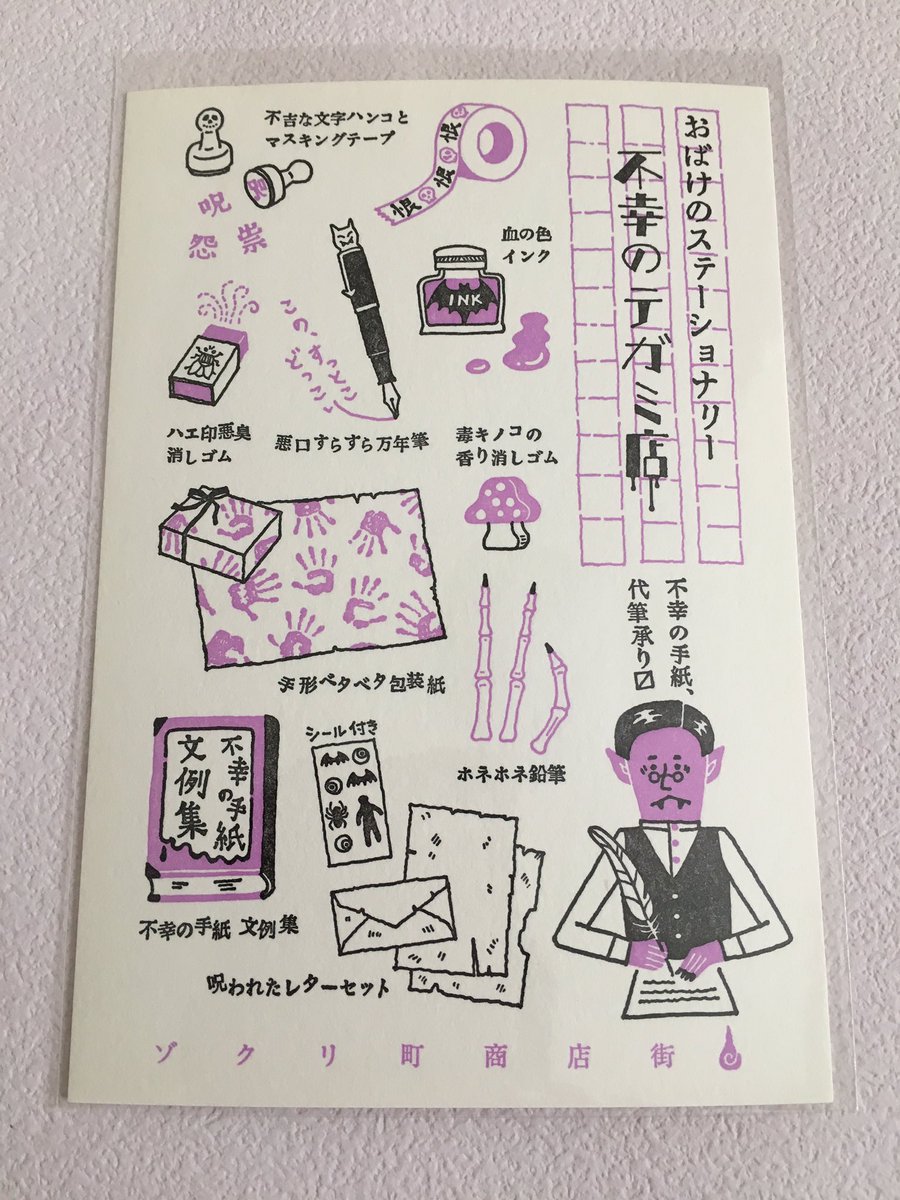 おばけのステーショナリー
不幸のテガミ店
不吉な文字ハンコと
マスキングテープ
恨
恨
恨
呪
怨 祟
血の色
インク
INK
この、
すっとこ
どっこい
ハエ印悪臭
消しゴム
悪口すらすら万年筆
毒キノコの
香り消しゴム
手形ペタペタ包装紙
不幸の手紙、
代筆承り〼
ホネホネ鉛筆
シール付き
不幸の手紙
文例集
不幸の手紙 文例集
呪われたレターセット
ゾクリ町商店街